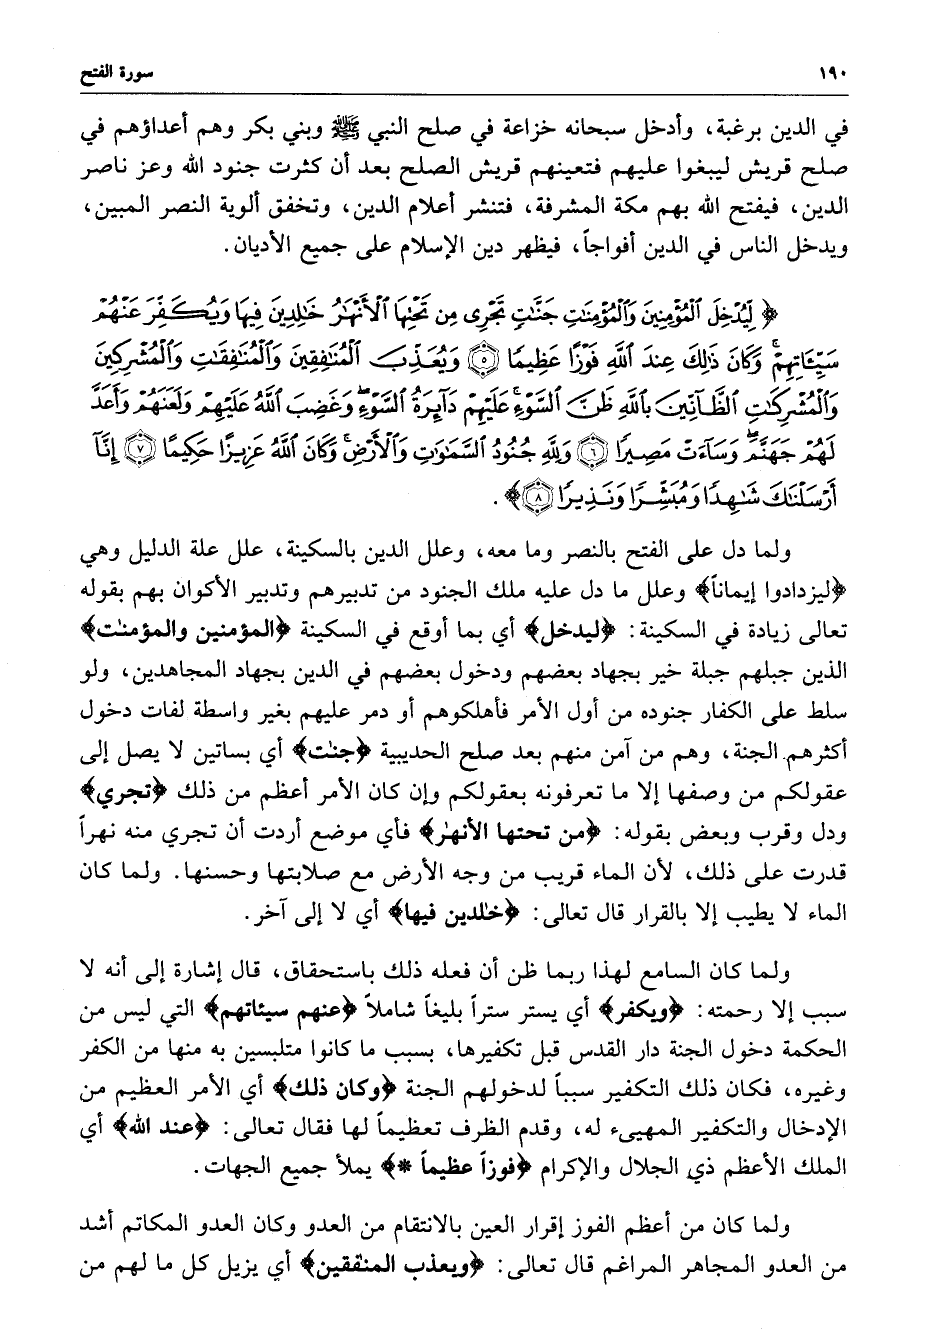 ١٩٠
سورة الفتح
في الدين برغبة، وأدخل سبحانه خزاعة في صلح النبي ﷺ وبني بكر وهم أعداؤهم في
صلح قريش ليبغوا عليهم فتعينهم قريش الصلح بعد أن كثرت جنود الله وعز ناصر
الدين، فيفتح الله بهم مكة المشرفة، فتنشر أعلام الدين، وتخفق ألوية النصر المبين،
ويدخل الناس في الدين أفواجاً، فيظهر دين الإسلام على جميع الأديان.
﴿لِيُدْخِلَ ٱلْمُؤْمِنِينَ وَٱلْمُؤْمِنَٰتِ جَنَّٰتٍ تَجْرِى مِن تَحْتِهَا ٱلْأَنْهَٰرُ خَٰلِدِينَ فِيهَا وَيُكَفِّرَ عَنْهُمْ
سَيِّـَٔاتِهِمْ ۚ وَكَانَ ذَٰلِكَ عِندَ ٱللَّهِ فَوْزًا عَظِيمًا ﴿٥﴾ وَيُعَذِّبَ ٱلْمُنَٰفِقِينَ وَٱلْمُنَٰفِقَٰتِ وَٱلْمُشْرِكِينَ
وَٱلْمُشْرِكَٰتِ ٱلظَّآنِّينَ بِٱللَّهِ ظَنَّ ٱلسَّوْءِ ۚ عَلَيْهِمْ دَآئِرَةُ ٱلسَّوْءِ ۖ وَغَضِبَ ٱللَّهُ عَلَيْهِمْ وَلَعَنَهُمْ وَأَعَدَّ
لَهُمْ جَهَنَّمَ ۖ وَسَآءَتْ مَصِيرًا ﴿٦﴾ وَلِلَّهِ جُنُودُ ٱلسَّمَٰوَٰتِ وَٱلْأَرْضِ ۚ وَكَانَ ٱللَّهُ عَزِيزًا حَكِيمًا ﴿٧﴾ إِنَّآ
أَرْسَلْنَٰكَ شَٰهِدًا وَمُبَشِّرًا وَنَذِيرًا ﴿٨﴾﴾.
ولما دل على الفتح بالنصر وما معه، وعلل الدين بالسكينة، علل علة الدليل وهي
﴿ليزدادوا إيماناً﴾ وعلل ما دل عليه ملك الجنود من تدبيرهم وتدبير الأكوان بهم بقوله
تعالى زيادة في السكينة: ﴿ليدخل﴾ أي بما أوقع في السكينة ﴿المؤمنين والمؤمنٰت﴾
الذين جبلهم جبلة خير بجهاد بعضهم ودخول بعضهم في الدين بجهاد المجاهدين، ولو
سلط على الكفار جنوده من أول الأمر فأهلكوهم أو دمر عليهم بغير واسطة لفات دخول
أكثرهم الجنة، وهم من آمن منهم بعد صلح الحديبية ﴿جنٰت﴾ أي بساتين لا يصل إلى
عقولكم من وصفها إلا ما تعرفونه بعقولكم وإن كان الأمر أعظم من ذلك ﴿تجري﴾
ودل وقرب وبعض بقوله: ﴿من تحتها الأنهٰر﴾ فأي موضع أردت أن تجري منه نهراً
قدرت على ذلك، لأن الماء قريب من وجه الأرض مع صلابتها وحسنها. ولما كان
الماء لا يطيب إلا بالقرار قال تعالى: ﴿خٰلدين فيها﴾ أي لا إلى آخر.
ولما كان السامع لهذا ربما ظن أن فعله ذلك باستحقاق، قال إشارة إلى أنه لا
سبب إلا رحمته: ﴿ويكفر﴾ أي يستر ستراً بليغاً شاملاً ﴿عنهم سيئاتهم﴾ التي ليس من
الحكمة دخول الجنة دار القدس قبل تكفيرها، بسبب ما كانوا متلبسين به منها من الكفر
وغيره، فكان ذلك التكفير سبباً لدخولهم الجنة ﴿وكان ذلك﴾ أي الأمر العظيم من
الإدخال والتكفير المهيىء له، وقدم الظرف تعظيماً لها فقال تعالى: ﴿عند الله﴾ أي
الملك الأعظم ذي الجلال والإكرام ﴿فوزاً عظيماً *﴾ يملأ جميع الجهات.
ولما كان من أعظم الفوز إقرار العين بالانتقام من العدو وكان العدو المكاتم أشد
من العدو المجاهر المراغم قال تعالى: ﴿ويعذب المنٰفقين﴾ أي يزيل كل ما لهم من